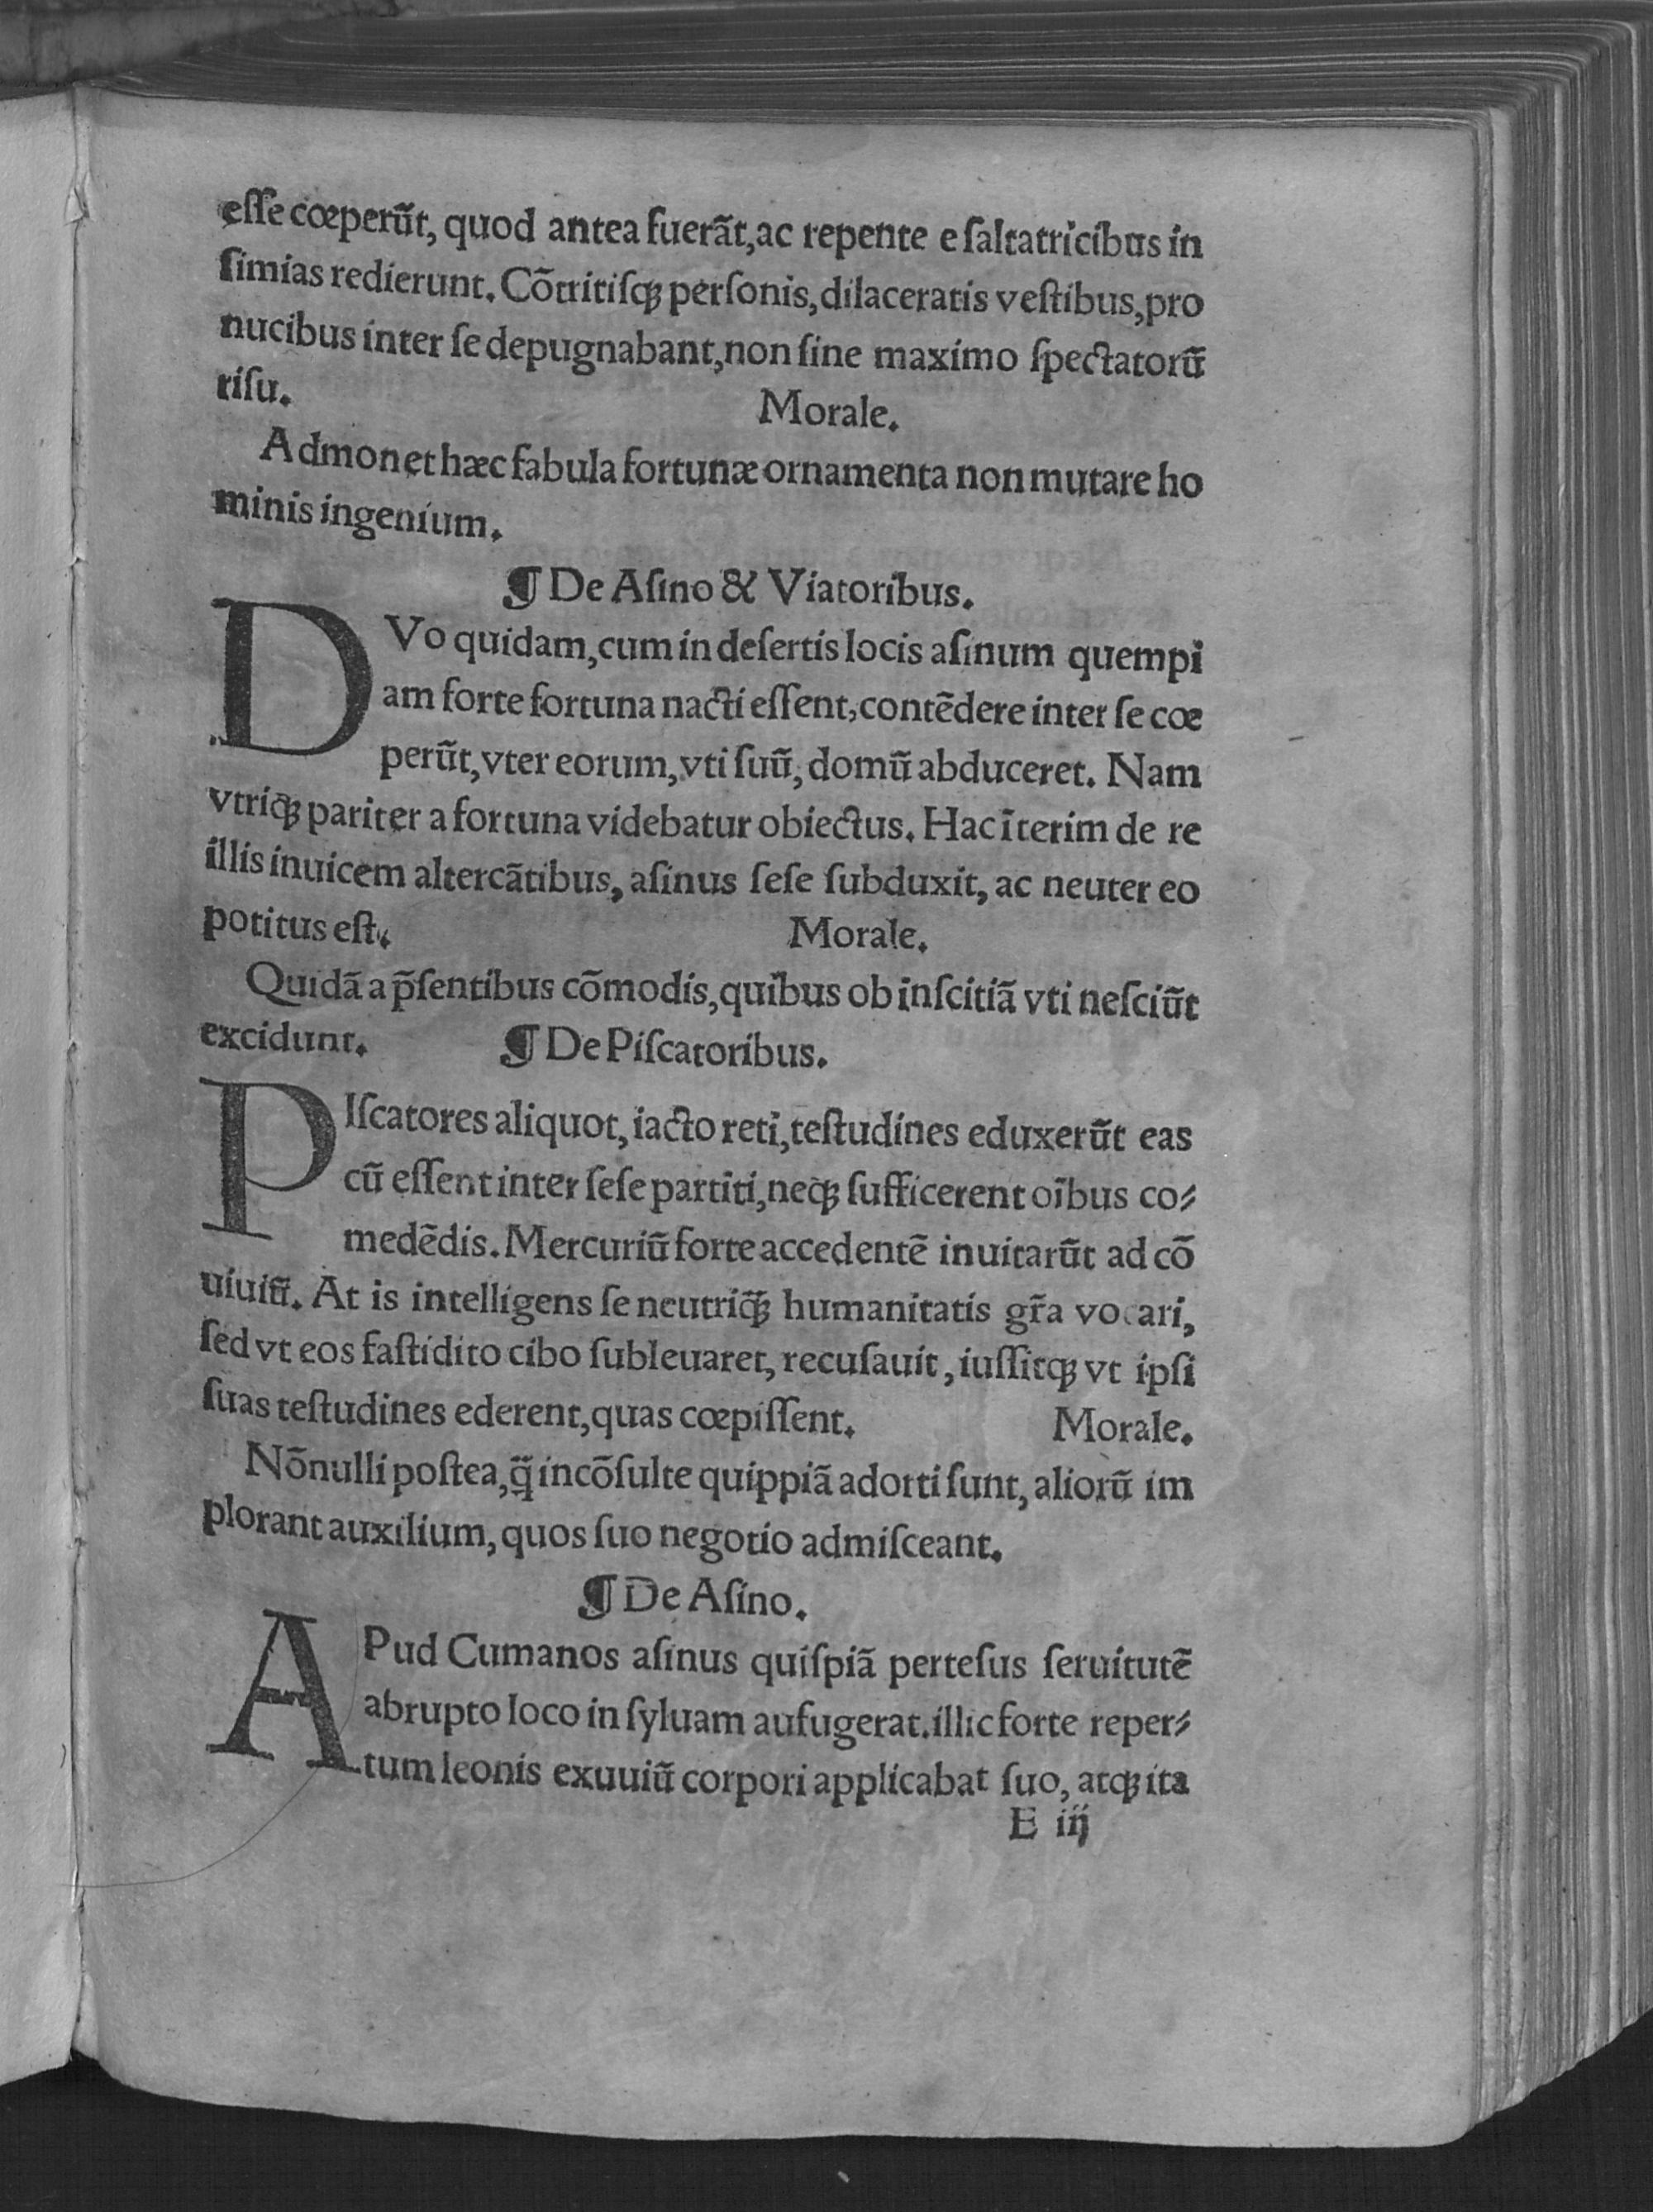 eſſe cœperũt, quod antea fuerãt, ac repente e ſaltatricibus in
ſimias redierunt. Cõtritiſqꝫ perſonis, dilaceratis veſtibus, pro
nucibus inter ſe depugnabant, non ſine maximo ſpectatorũ
riſu. Morale.
Admonet hæc fabula fortunæ ornamenta non mutare ho
minis ingenium.
¶ De Aſino & Viatoribus.
DVo quidam, cum in deſertis locis aſinum quempi
am forte fortuna nacti eſſent, contẽdere inter ſe cœ
perũt, vter eorum, vti ſuũ, domũ abduceret. Nam
vtriqꝫ pariter a fortuna videbatur obiectus. Hac ĩterim de re
illis inuicem altercãtibus, aſinus ſeſe ſubduxit, ac neuter eo
potitus eſt. Morale.
Quidã a p̃ſentibus cõmodis, quibus ob inſcitiã vti neſciũt
excidunt. ¶ De Piſcatoribus.
PIſcatores aliquot, iacto reti, teſtudines eduxerũt eas
cũ eſſent inter ſeſe partiti, neqꝫ ſufficerent oĩbus co⸗
medẽdis. Mercuriũ forte accedentẽ inuitarũt ad cõ
uiuiũ. At is intelligens ſe neutriqꝫ̃ humanitatis gr̃a vocari,
ſed vt eos faſtidito cibo ſubleuaret, recuſauit, iuſſitqꝫ vt ipſi
ſuas teſtudines ederent, quas cœpiſſent. Morale.
Nõnulli poſtea, q̃ incõſulte quippiã adorti ſunt, aliorũ im
plorant auxilium, quos ſuo negotio admiſceant.
¶ De Aſino.
APud Cumanos aſinus quiſpiã perteſus ſeruitutẽ
abrupto loco in ſyluam aufugerat. illic forte reper⸗
tum leonis exuuiũ corpori applicabat ſuo, atqꝫ ita
E iij